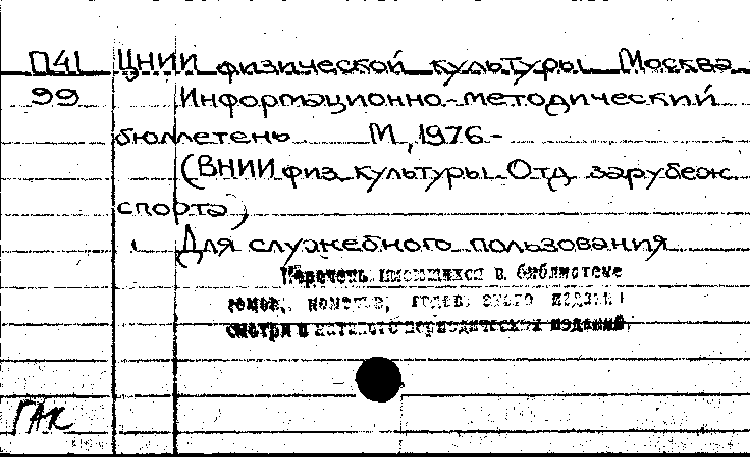 П41 ЦНИИ физической культуры. Москва
99 Информационно-методический
бюллетень М., 1976-
(ВНИИ физ. культуры. Отд. зарубеж.
спорта)
Для служебного пользования
Перечень имеющихся в библиотеке
томов, номеров, годов этого издания
смотри в каталоге периодических изданий.
ГАК